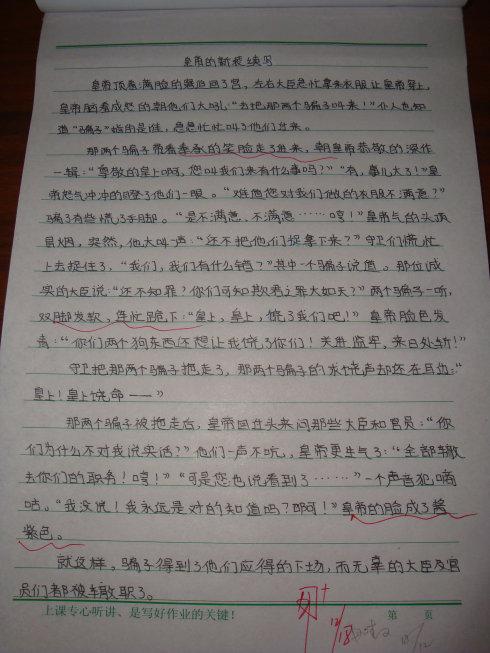 皇帝的新装续写
皇帝顶着满脸的 回了宫，左右大臣急忙拿来衣服让皇帝穿上，
皇帝脑羞成怒的朝他们大吼：“去把那两个骗子叫来！”仆人也知
道“骗子”指的是谁，急急忙忙叫了他们过来。
那两个骗子带着奉承的笑脸走了进来，朝皇帝恭敬的深作
一辑：“尊敬的皇上啊，您叫我们来有什么事吗？”“有，事儿大了！”皇
帝怒气冲冲的瞪了他们一眼。“难道您对我们做的衣服不满意？”
骗子有些慌了手脚。“是不满意，不满意……哼！”皇帝气的头顶
冒烟，突然，他大叫一声：“还不把他们捉拿下来？”守卫们慌忙
上去捉住了，“我们，我们有什么错？”其中一个骗子说道。那位诚
实的大臣说：“还不知罪？你们可知欺君之罪大如天？”两个骗子一听，
双脚发软，连忙跪下：“皇上，皇上，饶了我们吧！”皇帝脸色发
青：“你们两个狗东西还想让我饶了你们！关进监牢，来日处斩！”
守卫把那两个骗子拖走了，那两个骗子的求饶声却还在耳边：“
皇上！皇上饶命——”
那两个骗子被拖走后，皇帝回过头来问那些大臣和官员：“你
们为什么不对我说实话？”他们一声不吭，皇帝更生气了：“全部辙
去你们的职务！哼！”“可是您也说看到了……”一个声音犯嘀
咕。“我没说！我永远是对的知道吗？啊啊！”皇帝的脸成了酱
紫色。
就这样，骗子得到了他们应得的下场，而无辜的大臣及官
员们都被辙职了。
上课专心听讲、是写好作业的关键！ 第 页
12/18